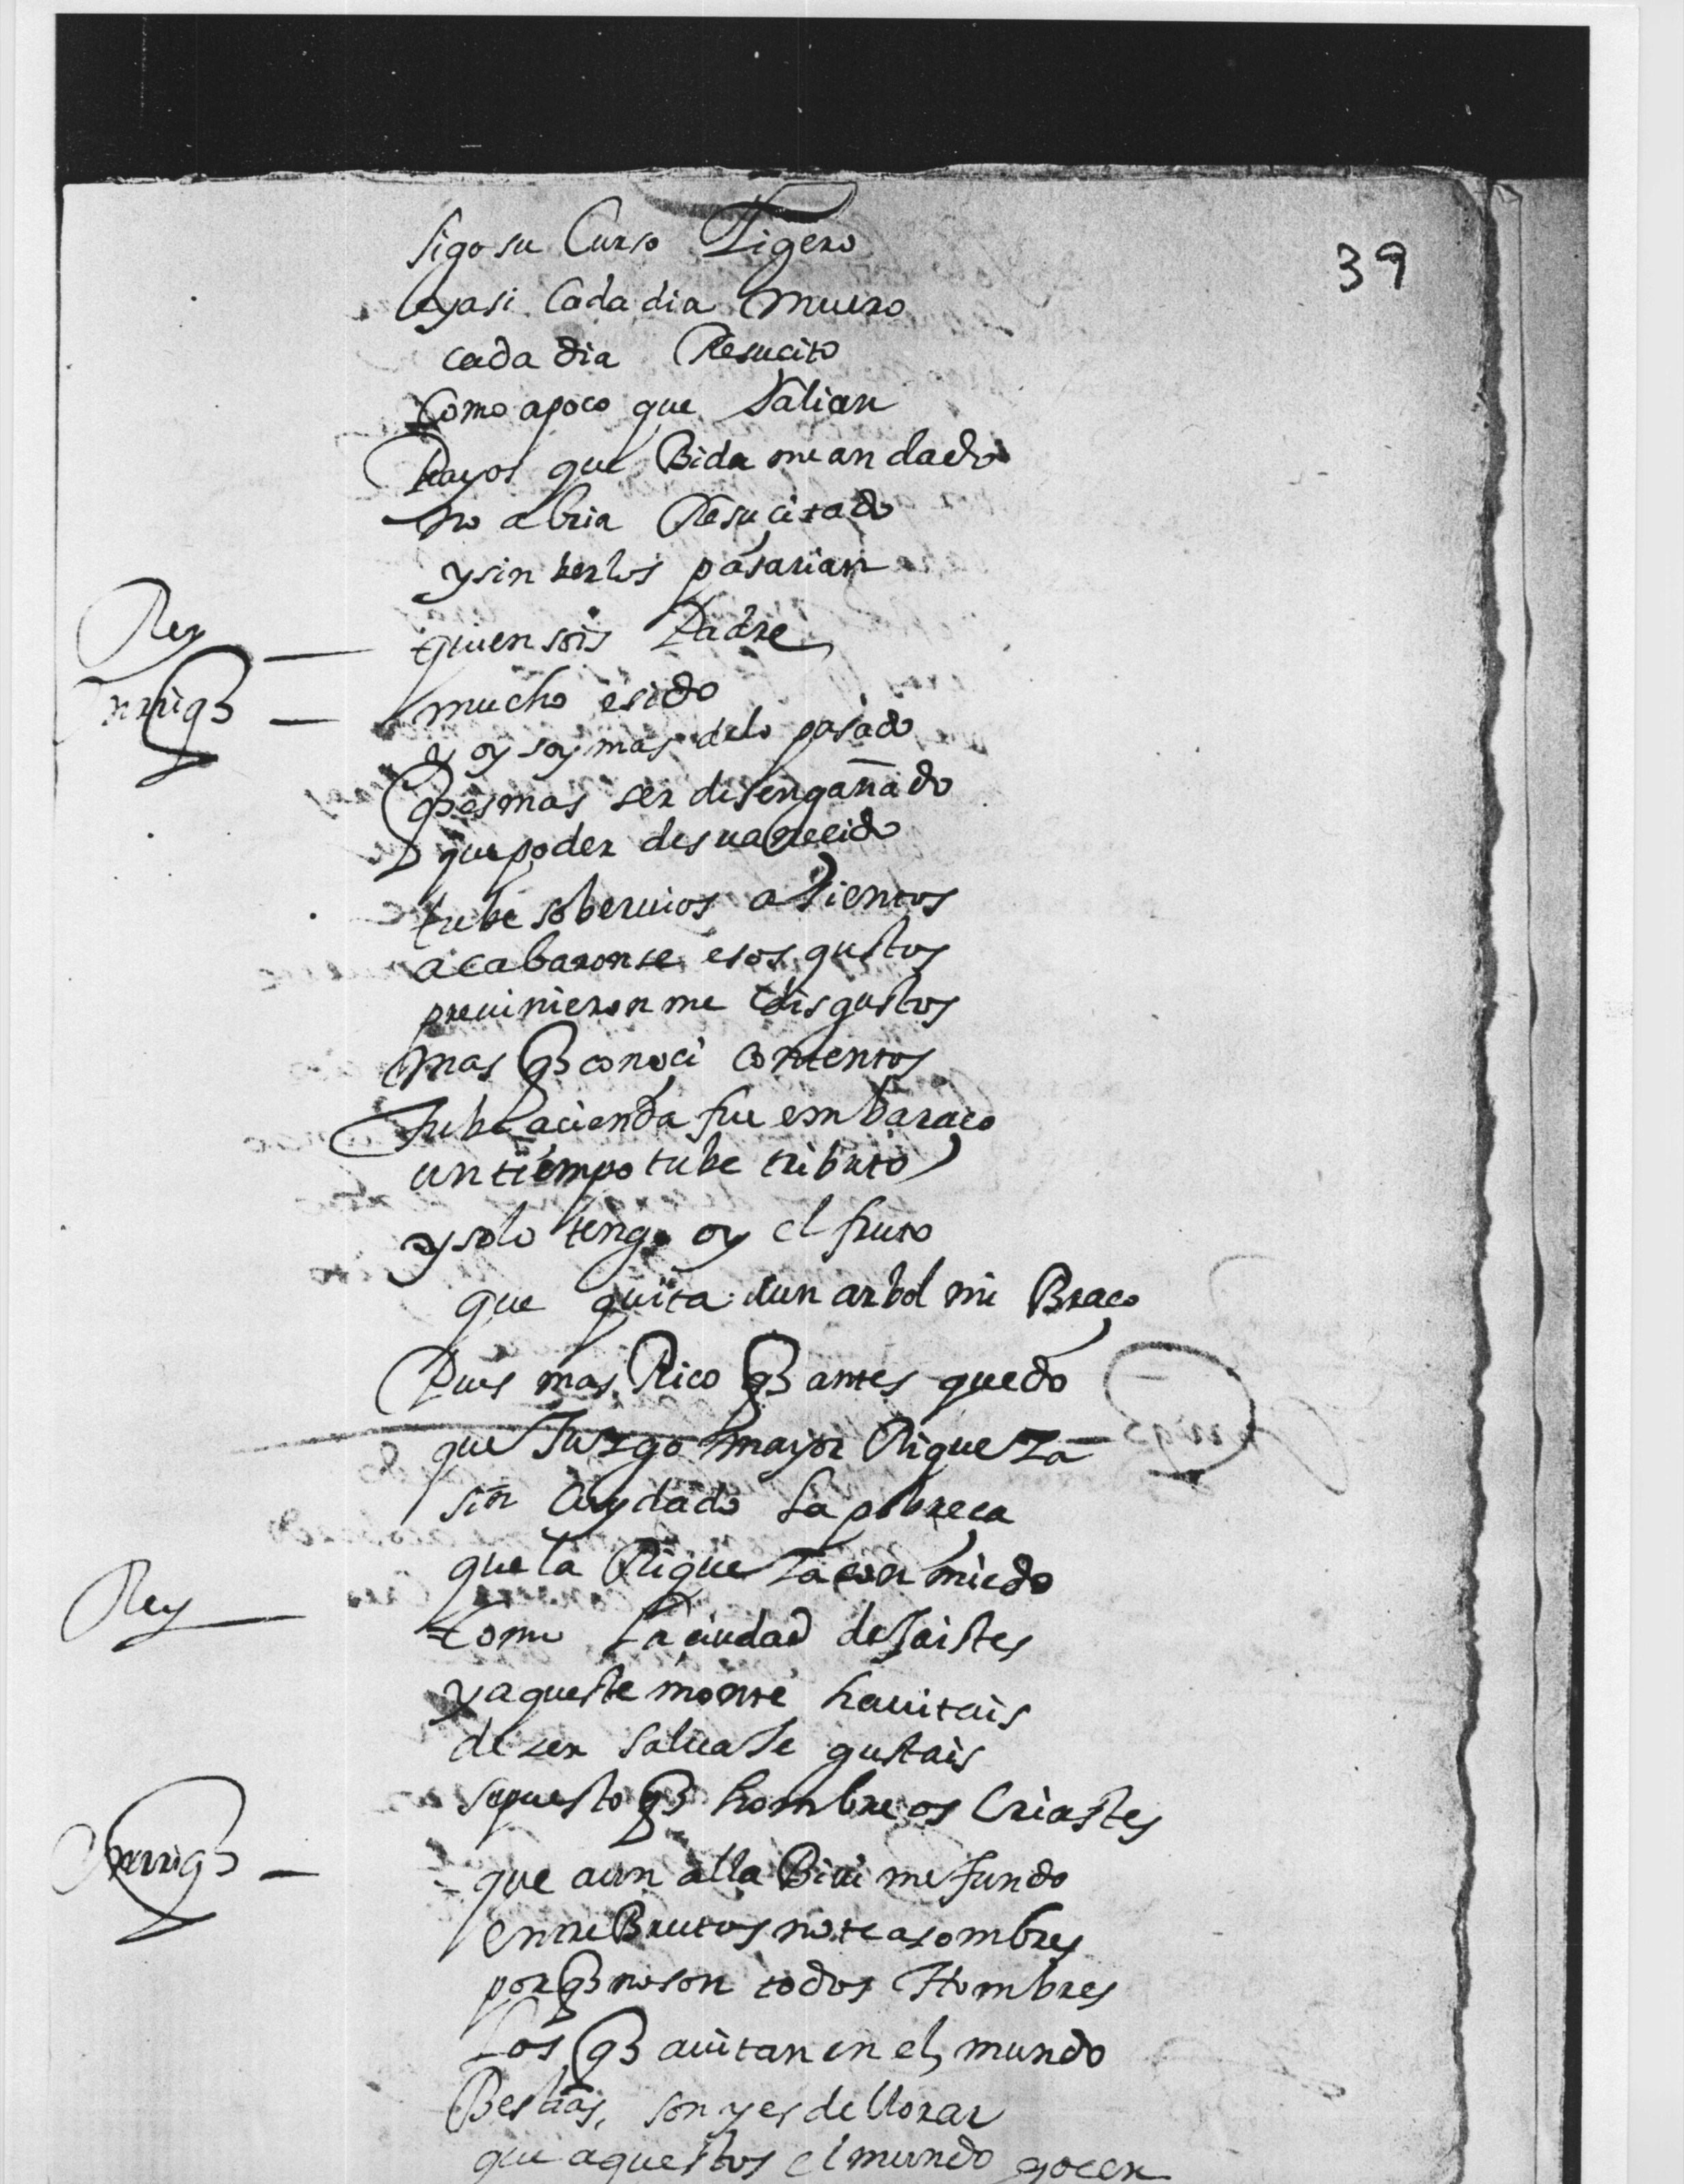 39
sigo su Curso Ligero
y asi Cada dia muero
cada dia Resucito
Como a poco que salian
Rayos que Bida me an dado
no abria Resucitado
y sin berlos pasarian
Rey — quien sois Padre
Enrriq — mucho e sido
y oy soy mas de lo pasado
q es mas ser desengañado
que poder desuanecido
tube soberuios asientos
acabaronse esos gustos
preuinieronme disgustos
mas q conoci contentos
tube acienda fue embaraço
un tiempo tube tributo
y solo tengo oy el fruto
que quita dun arbol mi Braço
Pues mas Rico q antes quedo
que Juzgo mayor Riqueza
sin Cuydado La pobreça
que la Riqueza con miedo
Rey — Como La ciudad dejaistes
y aqueste monte hauitais
de ser saluaje gustais
supuesto q hombre os Criastes
Enrriq — que aun alla Biui me fundo
entre Brutos no te asombres
porq no son todos Hombres
Los q auitan en el mundo
Bestias, son y es de llorar
que aquestos el mundo gocen